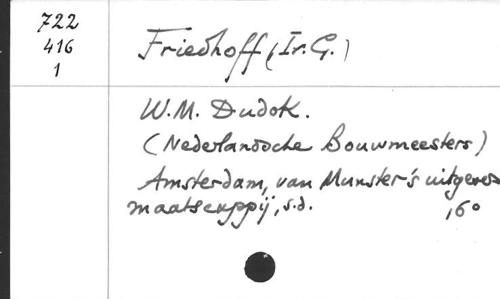 722
416
1
Friedhoff (Ir. G.)
W.M. Dudok.
(Nederlandsche Bouwmeesters)
Amsterdam, van Munster's uitgevers
maatschappij, s.d. 16°